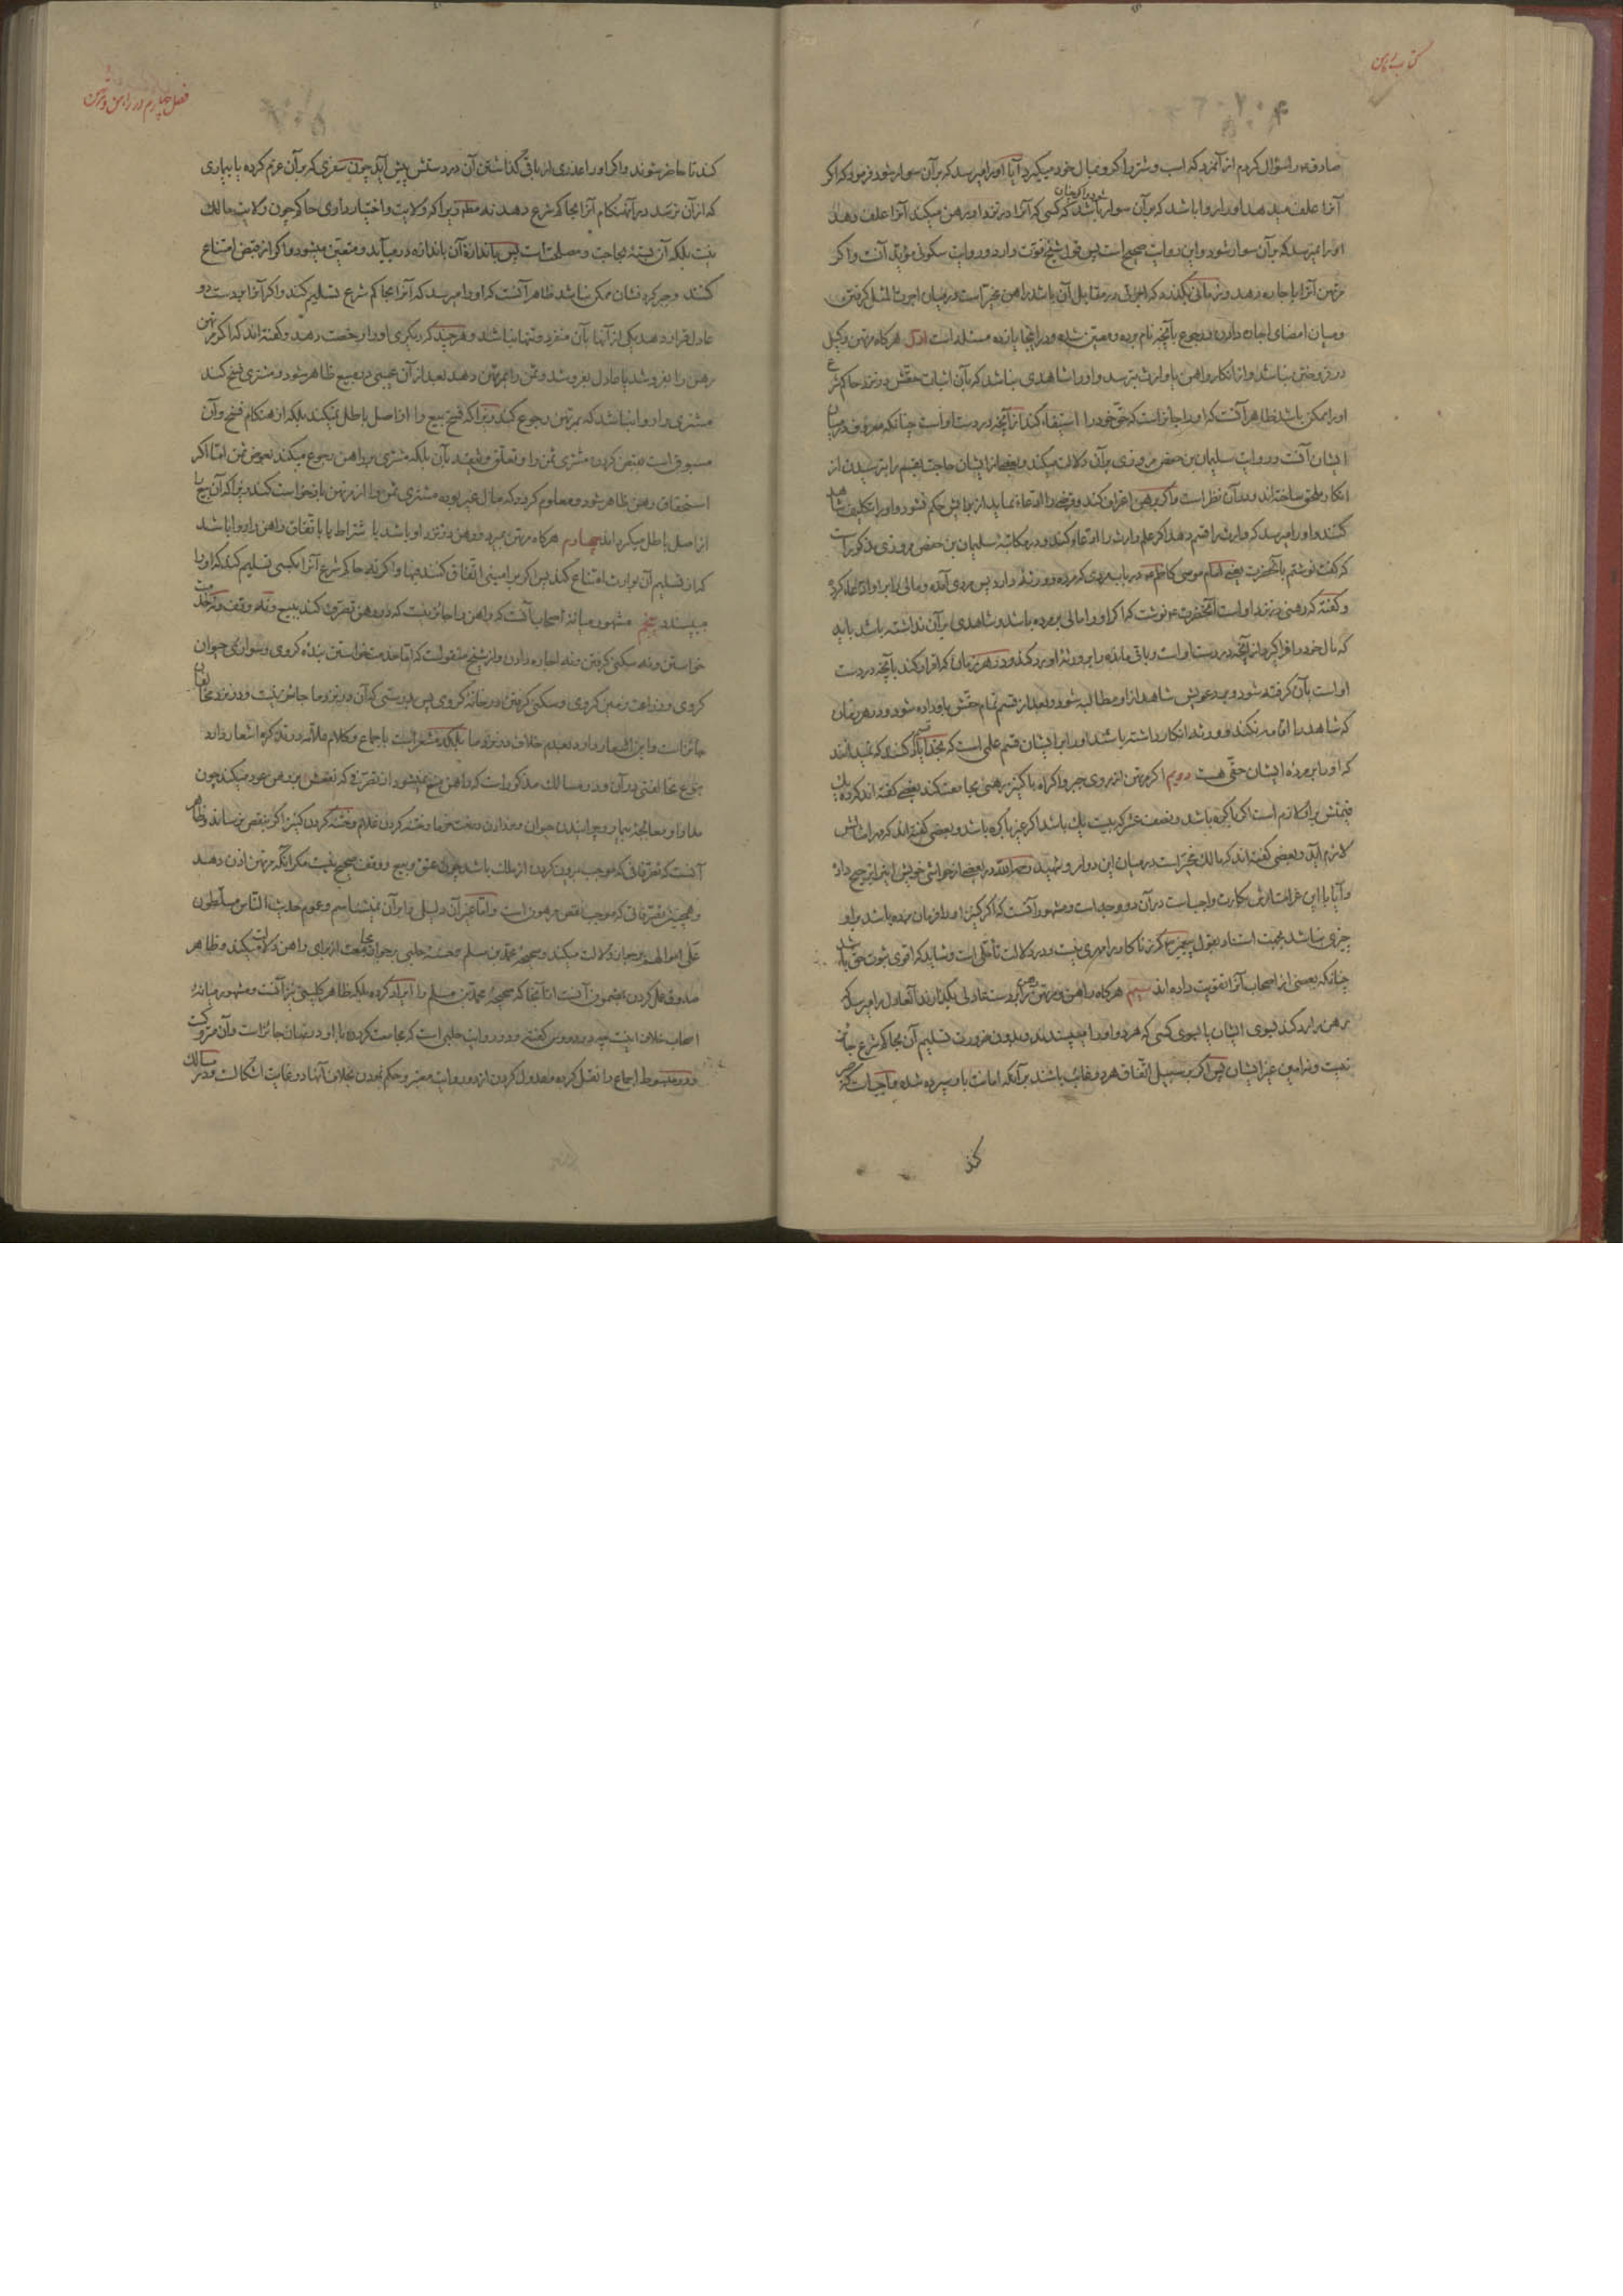 کتاب رهن
صادق ع را سؤال کردم از آنمرد که اسب و شتر را گرو بمال خود میگیرد آیا او را میرسد که بر آن سوار شود فرمود که اگر
آنرا علف میدهد او را روا باشد که بر آن سوار شود و اگر چنان باشد که کسی که آنرا در نزد او رهن میکند آنرا علف دهد
او را نمیرسد که بر آن سوار شود و این روایت صحیح است پس قول شیخ قوت دارد و روایت سکونی مؤید آنست و اگر
مرتهن آنرا باجاره دهد و زمانی بگذرد که اجرتی در مقابل آن باشد راهن مخیر است در میان اجرت المثل گرفتن
و میان امضای اجاره دادن و رجوع بآنچه نام برده و معین شده و در اینجا یازده مسئله است اول هرگاه مرتهن وکیل
در فروختن نباشد و از انکار راهن یا وارث بترسد و او را شاهدی نباشد که بآن اثبات حقش در نزد حاکم شرع
او را ممکن باشد ظاهر آنست که او را جایز است که حق خود را استیفاء کند از آنچه در دست او است چنانکه معروف در میان
ایشان آنست و روایت سلیمان بن حفص مروزی بر آن دلالت میکند و بعضی از ایشان حاجت بقسم را بترسیدن از
انکار ملحق ساخته اند و در آن نظر است و اگر برهن اعتراف کند و قرض را ادعاء نماید از برایش حکم نشود و او را تکلیف شاهد
کنند و او را میرسد که وارث را قسم دهد اگر علم وارث را ادعاء کند و در مکاتبهٔ سلیمان بن حفص مروزی مذکور است
که گفت نوشتم بآنحضرت یعنی امام موسی کاظم ع در باب مردی که مرده و ورثه دارد پس مردی آمده و مالی را بر او ادعا کرده
و گفته که رهنی در نزد او است آنحضرت ع نوشت که اگر او را مالی بر مرده باشد و شاهدی بر آن نداشته باشد باید
که مال خود را فرا گیرد از آنچه در دست او است و باقی مانده را بورثهٔ او رد کند و در هر زمان که اقرار کند بآنچه در دست
او است بآن گرفته شود و بر دعویش شاهد از او مطالبه شود و بعد از قسم تمام حقش باو داده شود و در هر زمان
که شاهد را اقامه نکند و ورثه انکار داشته باشند او را بر ایشان قسم علمی است که بخدا یاد کنند که نمیدانند
که او را بر مردهٔ ایشان حقی هست دویم اگر مرتهن از روی جبر و اکراه با کنیز رهنی مجامعت کند بعضی گفته اند که ده یک
قیمتش بر او لازم است اگر باکره باشد و نصف عشر که بیست یک باشد اگر غیر باکره باشد و بعضی گفته اند که مهر امثالش
لازم آید و بعضی گفته اند که مالک مخیر است در میان این دو امر و شهید رحمه الله در بعضی از حواشی خویش اینرا ترجیح داده
و آیا با این غرامت ارش بکارت واجب است در آن دو وجه است و مشهور آنست که اگر کنیز او را فرمان برده باشد بر او
چیزی نباشد بجهت استناد بقول پیغمبر ص که زناکار را مهری نیست و در دلالت تأملی است و شاید که اقوی ثبوت حق باشد
چنانکه بعضی از اصحاب آنرا تقویت داده اند سیم هرگاه راهن و مرتهن رهن را بر دست عادلی بگذارند آنعادل را میرسد که
رهن را رد کند بسوی ایشان یا بسوی کسی که هر دو او را میپسندند و بدون ضرورت تسلیم آن بحاکم شرع جایز
نیست و نه امین غیر ایشان پس اگر بر سبیل اتفاق هر دو غائب باشند بر آنکه امانت باو سپرده شده واجب است که صبر
کند
فصل چهارم در راهن و مرتهن
کند تا حاضر شوند و اگر او را عذری از باقی گذاشتن آن در دستش پیش آید چون سفری که بر آن عزم کرده یا بیماری
که از آن ترسد در آنهنگام آنرا بحاکم شرع دهد نه مطلقا زیرا که ولایت و اختیار داری حاکم چون ولایت مالک
نیست بلکه آن بستهٔ بحاجت و مصلحت است پس باندازهٔ آن باندازه درمیآید و متعین میشود و اگر از قبض امتناع
کنند و جبر کردنشان ممکن نباشد ظاهر آنست که او را میرسد که آنرا بحاکم شرع تسلیم کند و اگر آنرا بر دست دو
عادل قرار دهد یکی از آنها بآن منفرد و تنها نباشد و هر چند که دیگری او را رخصت دهد و گفته اند که اگر مرتهن
رهن را بفروشد یا عادل بفروشد و ثمن را بمرتهن دهد بعد از آن عیبی در مبیع ظاهر شود و مشتری فسخ کند
مشتری را روا نباشد که بمرتهن رجوع کند زیرا که فسخ بیع را از اصل باطل نمیکند بلکه از هنگام فسخ و آن
مسبوق است بقبض کردن مشتری ثمن را و تعلق وثیقه بآن بلکه مشتری بر راهن رجوع میکند بعوض ثمن اما اگر
استحقاق رهن ظاهر شود و معلوم گردد که مال غیر بوده مشتری ثمن را از مرتهن بازخواست کند زیرا که آن بیع را
از اصل باطل میگرداند چهارم هرگاه مرتهن بمیرد و رهن در نزد او باشد با شتراط یا باتفاق راهن را روا باشد
که از تسلیم آن بوارث امتناع کند پس اگر بر امینی اتفاق کنند فبها و اگر نه حاکم شرع آنرا بکسی تسلیم کند که او را
میپسندد پنجم مشهور میانهٔ اصحاب آنست که راهن را جایز نیست که در رهن تصرف کند ببیع و نه وقف و نه خدمت
خواستن و نه سکنی گرفتن و نه اجاره دادن و از شیخ منقولست که اما خدمت خواستن بندهٔ گروی و سواری حیوان
گروی و زراعت زمین گروی و سکنی گرفتن در خانهٔ گروی پس بدرستی که آن در نزد ما جایز نیست و در نزد مخالفان
جائز است و این اشعار دارد بعدم خلاف در نزد ما بلکه مشعر است باجماع و کلام علامه در تذکره اشعار دارد
بنوع مخالفتی در آن و در مسالک مذکور است که راهن منع نمیشود از تصرفی که نفعش بر رهن عود میکند چون
مداوا و معالجهٔ بیمار و چرانیدن حیوان و مدارات درخت خرما و ختنه کردن غلام و ختنه کردن کنیز اگر بنقص نرساند و ظاهر
آنست که تصرفاتی که موجب بیرون کردن از ملک باشد چون عتق و بیع و وقف صحیح نیست مگر آنکه مرتهن اذن دهد
و همچنین تصرفاتی که موجب نقص مرهون است و اما غیر آن دلیلی را بر آن نمیشناسم و عموم حدیث الناس مسلطون
علی اموالهم بر جواز دلالت میکند و صحیحهٔ محمد بن مسلم و حسنهٔ حلبی بر جواز مجامعت از برای راهن دلالت میکند و ظاهر
صدوق عمل کردن بمضمون آنست از آنجا که صحیحهٔ محمد بن مسلم را ایراد کرده بلکه ظاهر کلینی نیز آنست و مشهور میانهٔ
اصحاب خلاف اینست و در دروس گفته و در روایت حلبی است که مجامعت کردن با او در پنهان جائز است و آن متروکست
و در مبسوط اجماع را نقل کرده و عدول کردن از دو روایت معتبر و حکم نمودن بخلاف آنها در غایت اشکالست و در مسالک